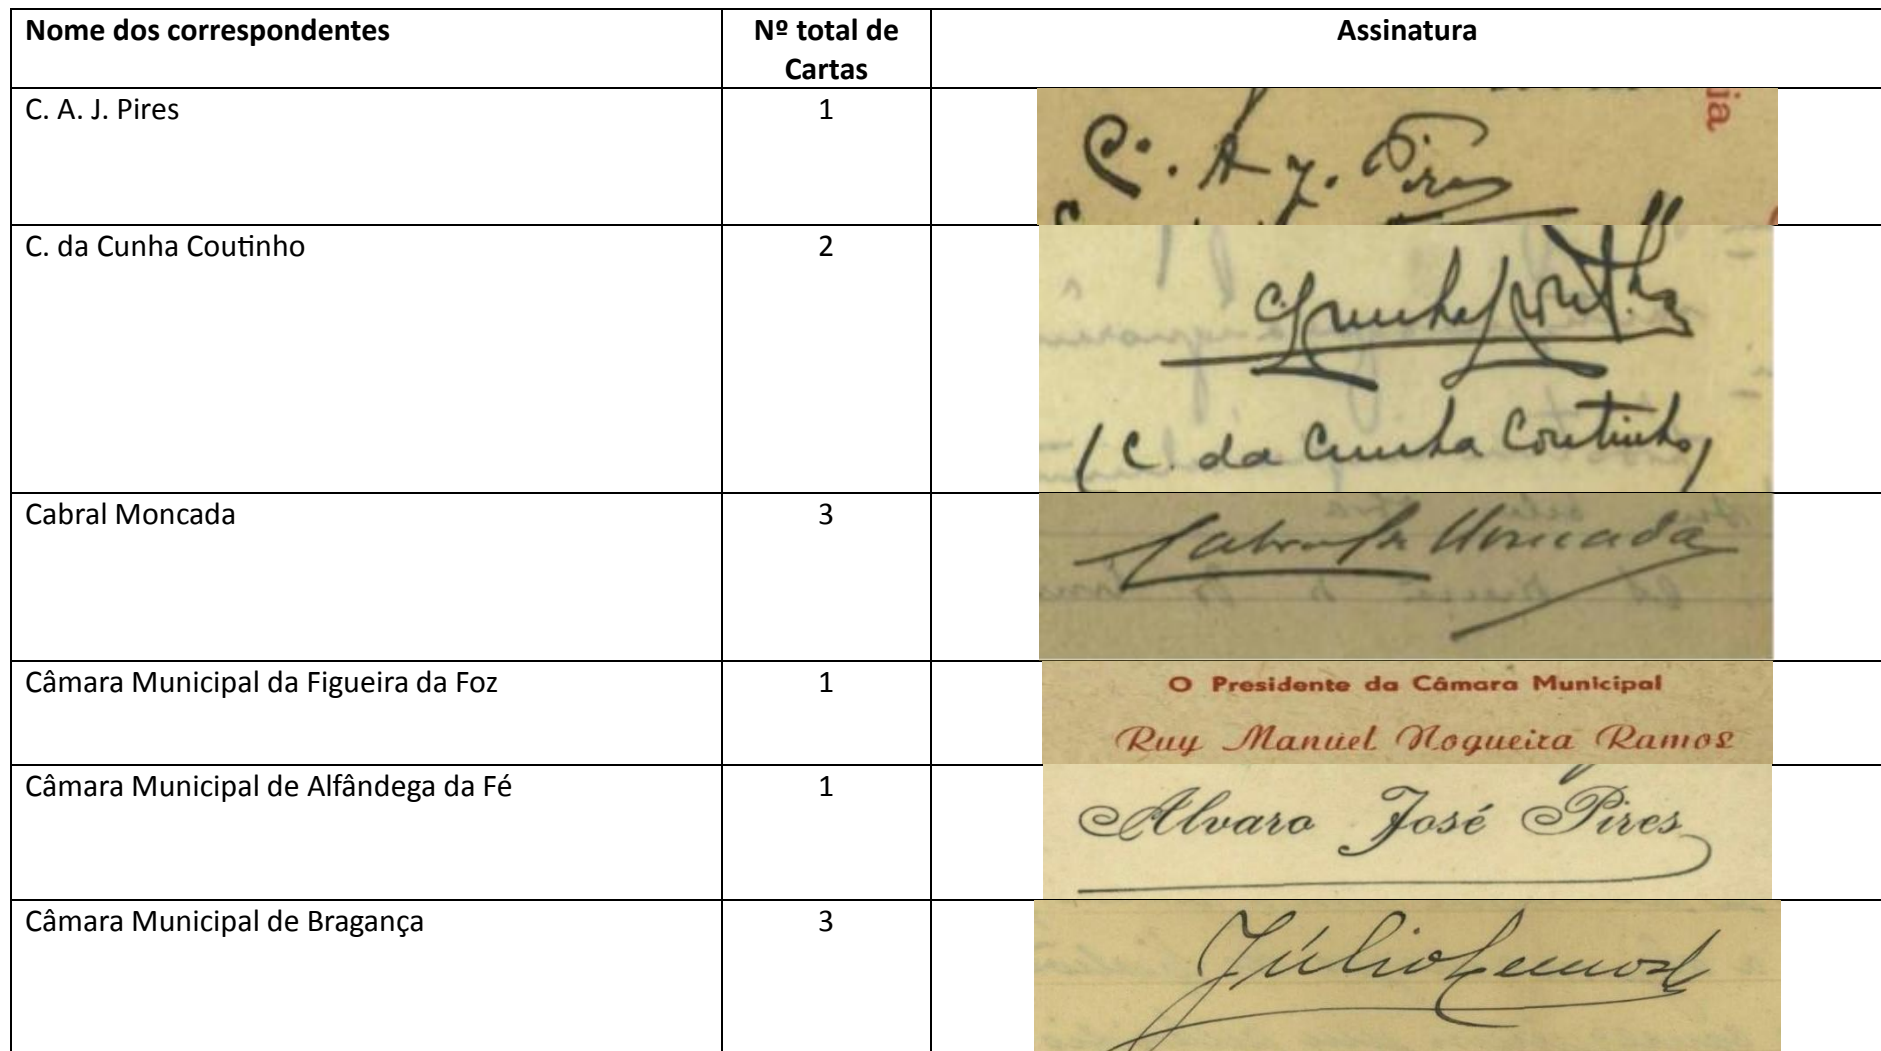 Nome dos correspondentes
Nº total de
Cartas
Assinatura
C. A. J. Pires
1
C. A. J. Pires
ia
C. da Cunha Coutinho
2
C. Cunha Coutinho
(C. da Cunha Coutinho)
Cabral Moncada
3
Cabral Moncada
Câmara Municipal da Figueira da Foz
1
O Presidente da Câmara Municipal
Ruy Manuel Nogueira Ramos
Câmara Municipal de Alfândega da Fé
1
Alvaro José Pires
Câmara Municipal de Bragança
3
Júlio Lemos